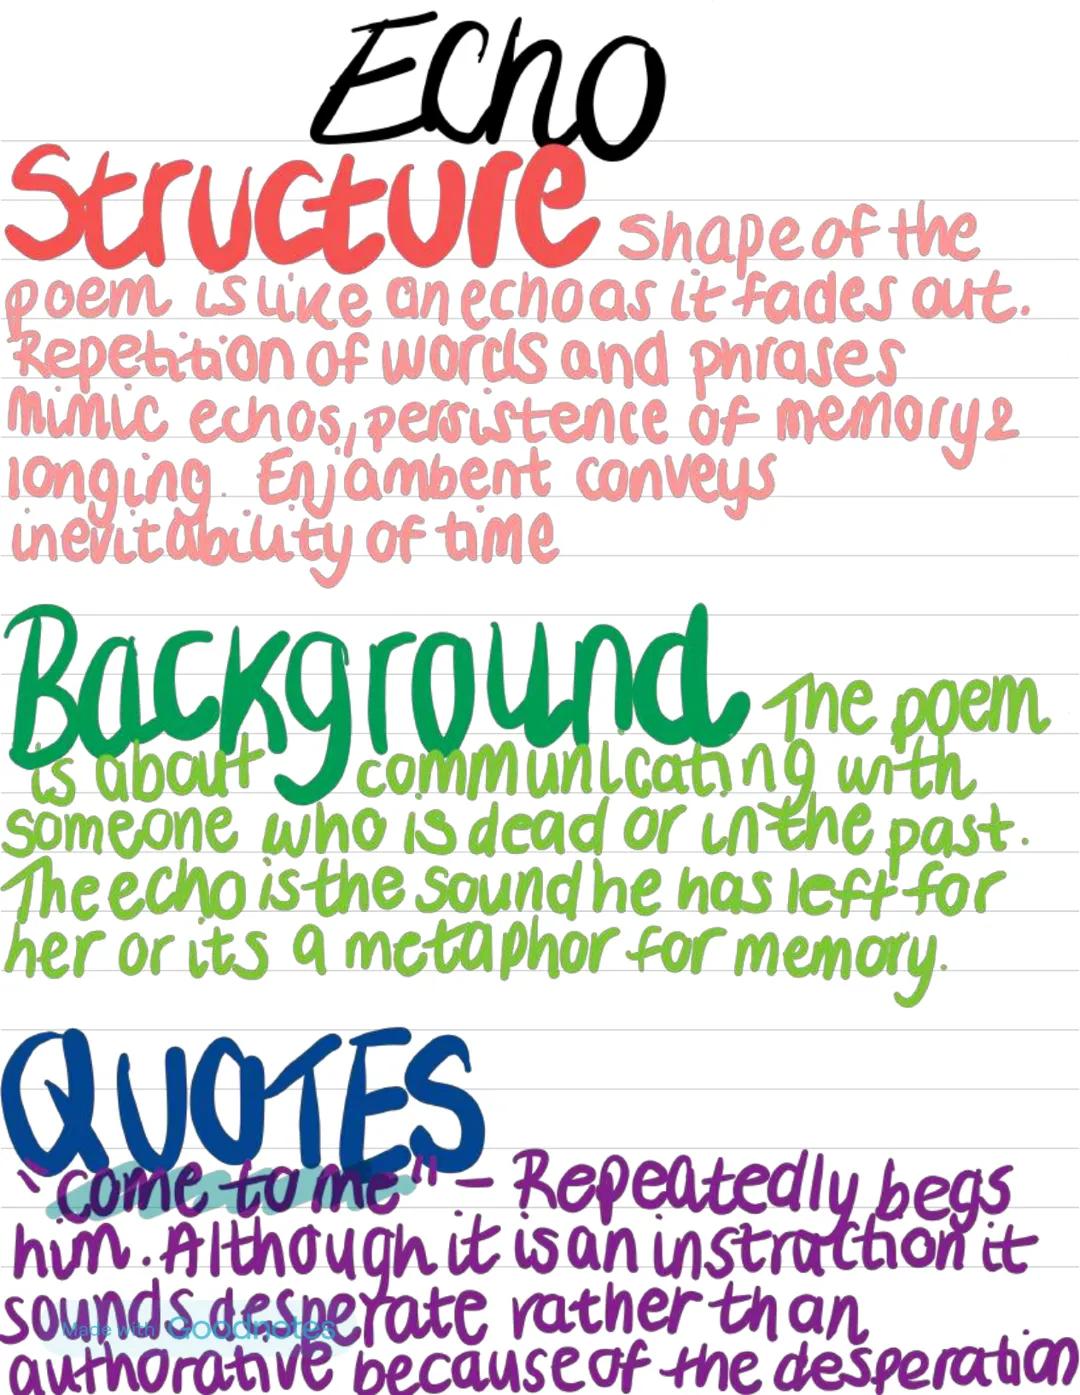 Echo
Structure shape of the
poem is like an echo as it fades out.
Repetition of words and phrases
mimic echos, persistence of memory &
longing. Enjambent conveys
inevitability of time
Background The poem
is about communicating with
someone who is dead or in the past.
The echo is the sound he has left for
her or its a metaphor for memory.
QUOTES
"come to me" - Repeatedly begs
him. Although it is an instruction it
sounds desperate rather than
Made with Goodnotes
authorative because of the desperation